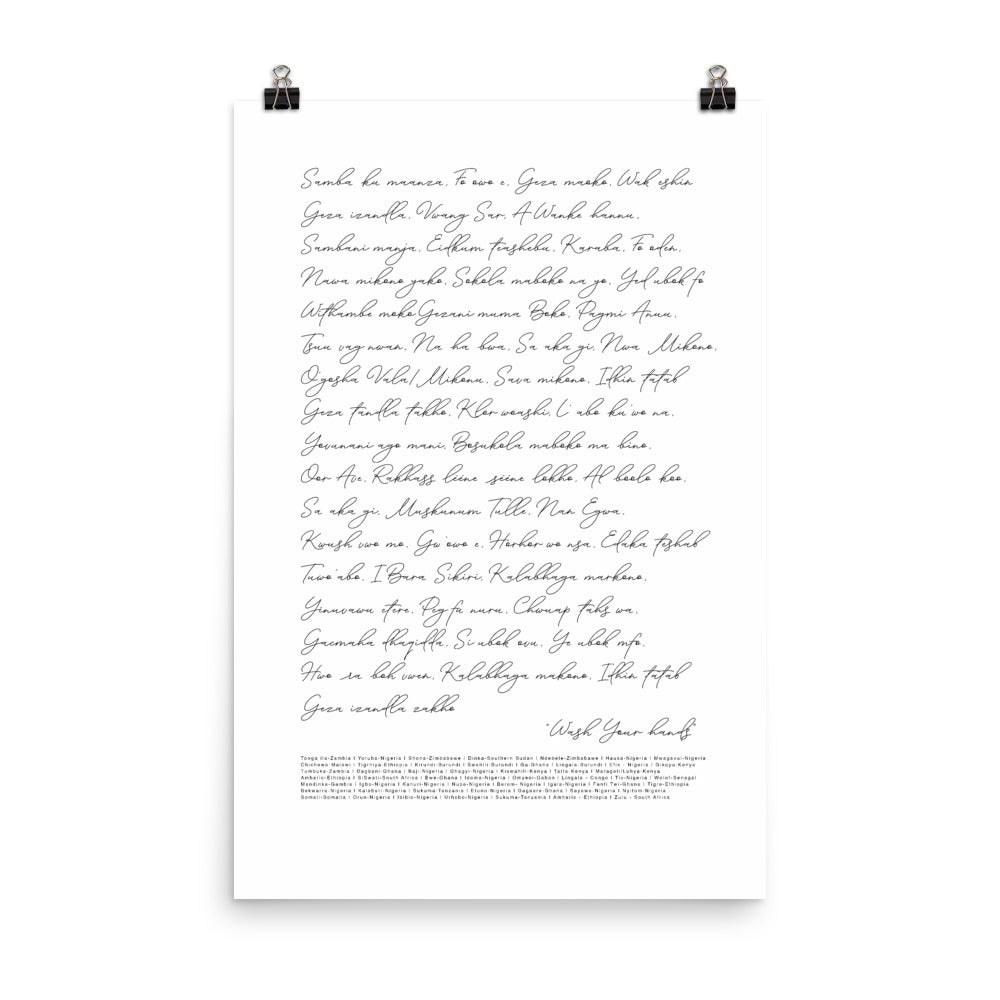 Samba ku maanza, Fo owo e, Geza maoko, Wak eshin
Geza izandla, Vwang Sar, A Wanke hannu,
Sambani manja, Eidkum teashebu, Karaba, Fo oden,
Nawa mikono yako, Sokola maboko na yo, Yed ubok fo
Withambe moko Gezani muma Boko, Pagmi Anuu,
Tsuu vag nwan, Na ha bwa, Sa aka gi, Nwa Mikono,
O'gosha Vala/Mikonu, Sava mikono, Idhin tatab
Geza tandla takho, Klor woashi, L' abo ku'wo na,
Yovunani ago mani, Bosukola maboko ma bino,
Oor Ave, Rakhass léene séene lokho, Al boolo koo,
Sa aka gi, Muskunum Tulle, Nan Egwa,
Kwush vwo mo, Gw'owo e, Horhor wo nsa, Edaka teshab
Tuwo'abo, I Bara Sikiri, Kalabhaga markono,
Yinuvawu etere, Peg fu nuru, Chwuap tahs wa,
Gacmaha dhaqidda, Si ubok ovu, Ye ubok mfo,
Hwo ra boh vwen, Kalabhaga makono, Idhin tatab
Geza izandla zakho
"Wash Your hands"
Tonga Ila-Zambia I Yoruba-Nigeria I Shona-Zimbabwe I Dinka-Southern Sudan I Ndebele-Zimbabwe I Hausa-Nigeria I Mwagavul-Nigeria
Chichewa-Malawi I Tigrinya-Ethiopia I Kirundi-Burundi I Swahili Burundi I Ga-Ghana I Lingala-Burundi I Efik - Nigeria I Gikuyu-Kenya
Tumbuka-Zambia I Dagbani-Ghana I Baji-Nigeria I Gbagyi-Nigeria I Kiswahili-Kenya I Taita-Kenya I Maragoli/Luhya-Kenya
Amharic-Ethiopia I SiSwati-South Africa I Ewe-Ghana I Idoma-Nigeria I Omyeni-Gabon I Lingala - Congo I Tiv-Nigeria I Wolof-Senegal
Mandinka-Gambia I Igbo-Nigeria I Kanuri-Nigeria I Nupe-Nigeria I Berom- Nigeria I Igala-Nigeria I Fanti Twi-Ghana I Tigre-Ethiopia
Bekwarra-Nigeria I Kalabari-Nigeria I Sukuma-Tanzania I Etuno-Nigeria I Dagaare-Ghana I Sayawa-Nigeria I Nyifom-Nigeria
Somali-Somalia I Orun-Nigeria I Ibibio-Nigeria I Urhobo-Nigeria I Sukuma-Tanzania I Amharic - Ethiopia I Zulu - South Africa